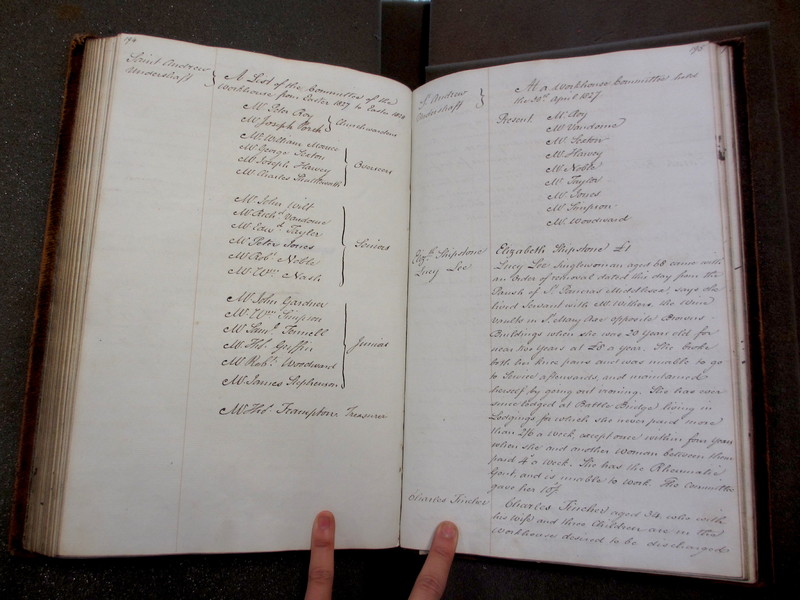 194
Saint Andrew
Undershaft
A List of the Committee of the
Workhouse from Easter 1827 to Easter 1828
Mr. Peter Roy
Mr. Joseph
Churchwardens
Mr. William
Mr. George Sexton
Mr. Joseph Harvey
Mr. Charles
Overseers
Mr. John Wilt
Mr. Richd. Vandome
Mr. Edwd. Taylor
Mr. Peter Jones
Mr. Robt. Noble
Mr. Wm. Nash
Seniors
Mr. John Gardner
Mr. Wm. Simpson
Mr. Saml. Fennell
Mr. Thos. Griffin
Mr. Robt. Woodward
Mr. James Stephenson
Juniors
Mr. Thos. Frampton, Treasurer
195
St. Andrew
Undershaft
At a Workhouse Committee held
the April 1827
Present
Mr. Roy
Mr. Vandome
Mr. Sexton
Mr. Harvey
Mr. Noble
Mr. Taylor
Mr. Jones
Mr. Simpson
Mr. Woodward
Elizth. Shipstone
Lucy Lee
Elizabeth Shipstone £1
Lucy Lee, Singlewoman aged 68 came with
an Order of removal dated this day from the
Parish of St. Pancras Middlesex, says she
lived Servant with Mr. Withers, the Wine
vaults in St. Mary Axe opposite Browns
Buildings when she was 20 Years old for
near two Years at £8 a Year. She broke
both her knee pans and was unable to go
to Service afterwards, and maintained
herself by going out ironing. She has ever
since lodged at Battle Bridge living in
Lodgings for which she never paid more
than 2/6 a Week, except once within four Years
when she and another Woman between them
paid 4/ a Week. She has the Rheumatic
Gout, and is unable to work. The Committee
gave her 10/.
Charles Fincher
Charles Fincher aged 34, who with
his Wife and three Children are in the
Workhouse desired to be discharged